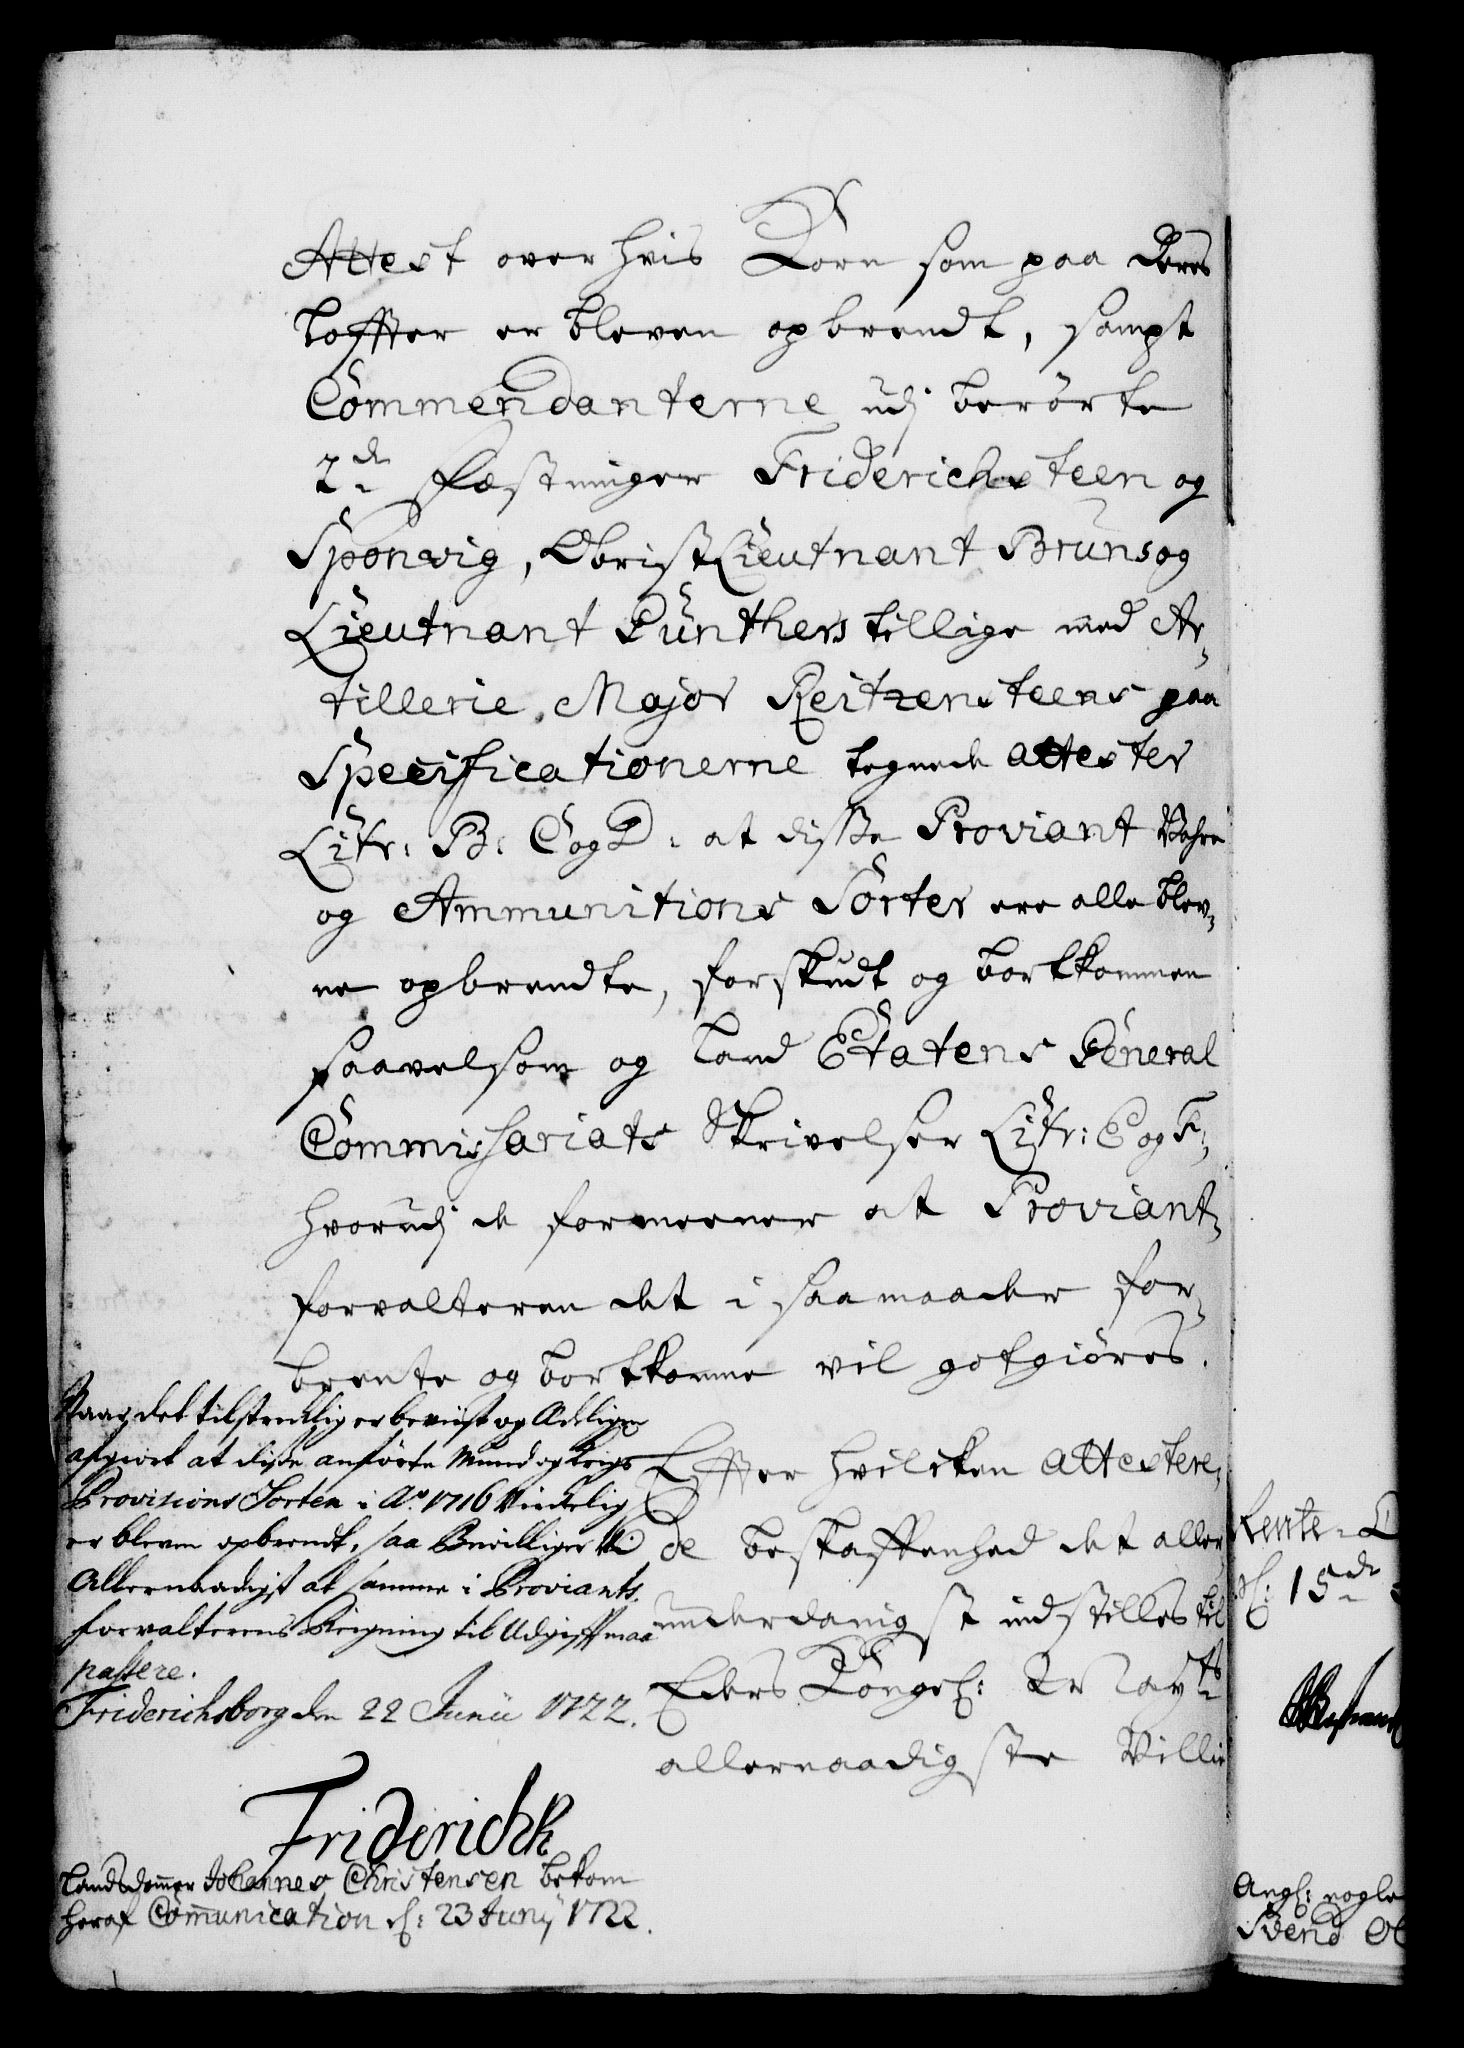 Attest over hvis Korn som paa deres
Loffter er bleven opbrendt, sampt
Commendanterne udj berørte
2de Fæstninger Friderichsteen og
Sponvig, ObristLieutnant Bruns og
Lieutnant Günthers tillige med Ar-
tillerie, Major Reitzensteens paa
Specificationerne tegnede attester
Litr: B: C og D: at disse Proviant Vahre
og Ammunitions Sorter ere alle blev-
ne opbrendte, forskudt og bortkommen
saavelsom og Land Etatens General
Commissariats Skrivelser Litr: E og F:
hvorudj de formeener at Proviant-
forvalteren det i saa maader for-
brente og bortkomne vil gotgiøres.
Effter hvilcken attestere-
de beskaffenhed det aller-
underdanigst indstilles til
Eders Kongel: Mayts
allernaadigste Villie
Naar det tilstrecklig er beviist og
afgiort at disse anførte Mund og Krigs
Provisions Sorter i Ao 1716 Virckelig
er bleven opbrendt, saa Bevilliger Vi
Allernaadigst at samme i Proviants-
forvalterens Reigning til Udgifft maa
passere.
Friderichsborg den 22 Junii 1722.
Friderich R
Landsdommer Johannes Christensen bekom
heraf Communication d: 23 Junij 1722.
Rente-
d: 15de
Angl: nogle
Svend